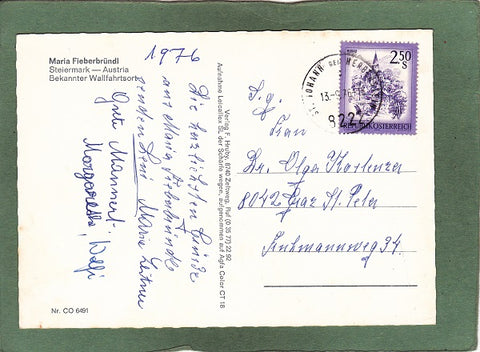 Maria Fieberbründl
Steiermark — Austria
Bekannter Wallfahrtsort
1976
Die herzlichsten Grüße
aus Maria Fieberbründl
senden Leni, Marie Leitner
Gute
Margarethe,
Verlag F. Hruby, 8740 Zeltweg, Ruf (0 35 77) 22 92
Aufnahme Leicaflex SL der Schärfe wegen, aufgenommen auf Agfa Color CT 18
Nr. CO 6491
2.50
S
REPUBLIK ÖSTERREICH
ST. JOHANN BEI HERBERSTEIN
8222
S. g.
Frau
Dr. Olga Kortenzer
8042 Graz St. Peter
34.